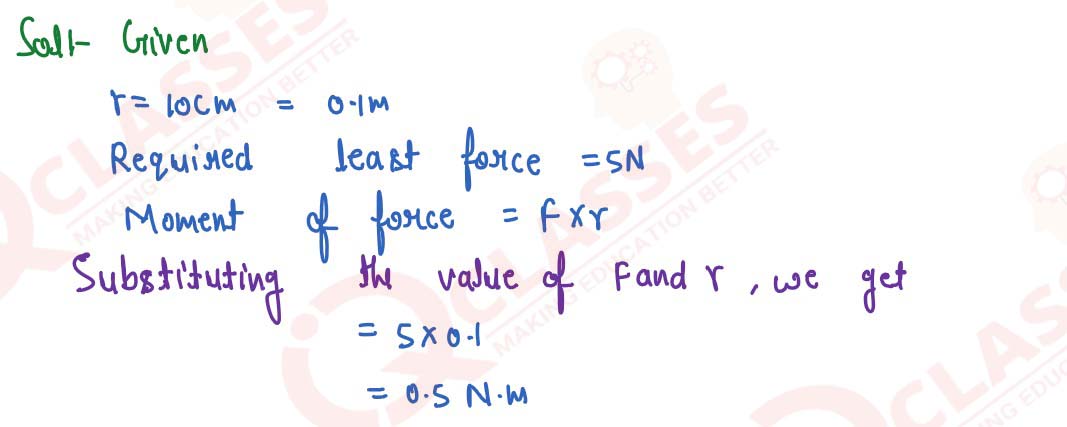 Sol:- Given
r = 10cm = 0.1m
Required least force = 5N
Moment of force = F × r
Substituting the value of F and r, we get
= 5 × 0.1
= 0.5 N.m
CLASSES
MAKING EDUCATION BETTER
CLASSES
MAKING EDUCATION BETTER
CLASSES